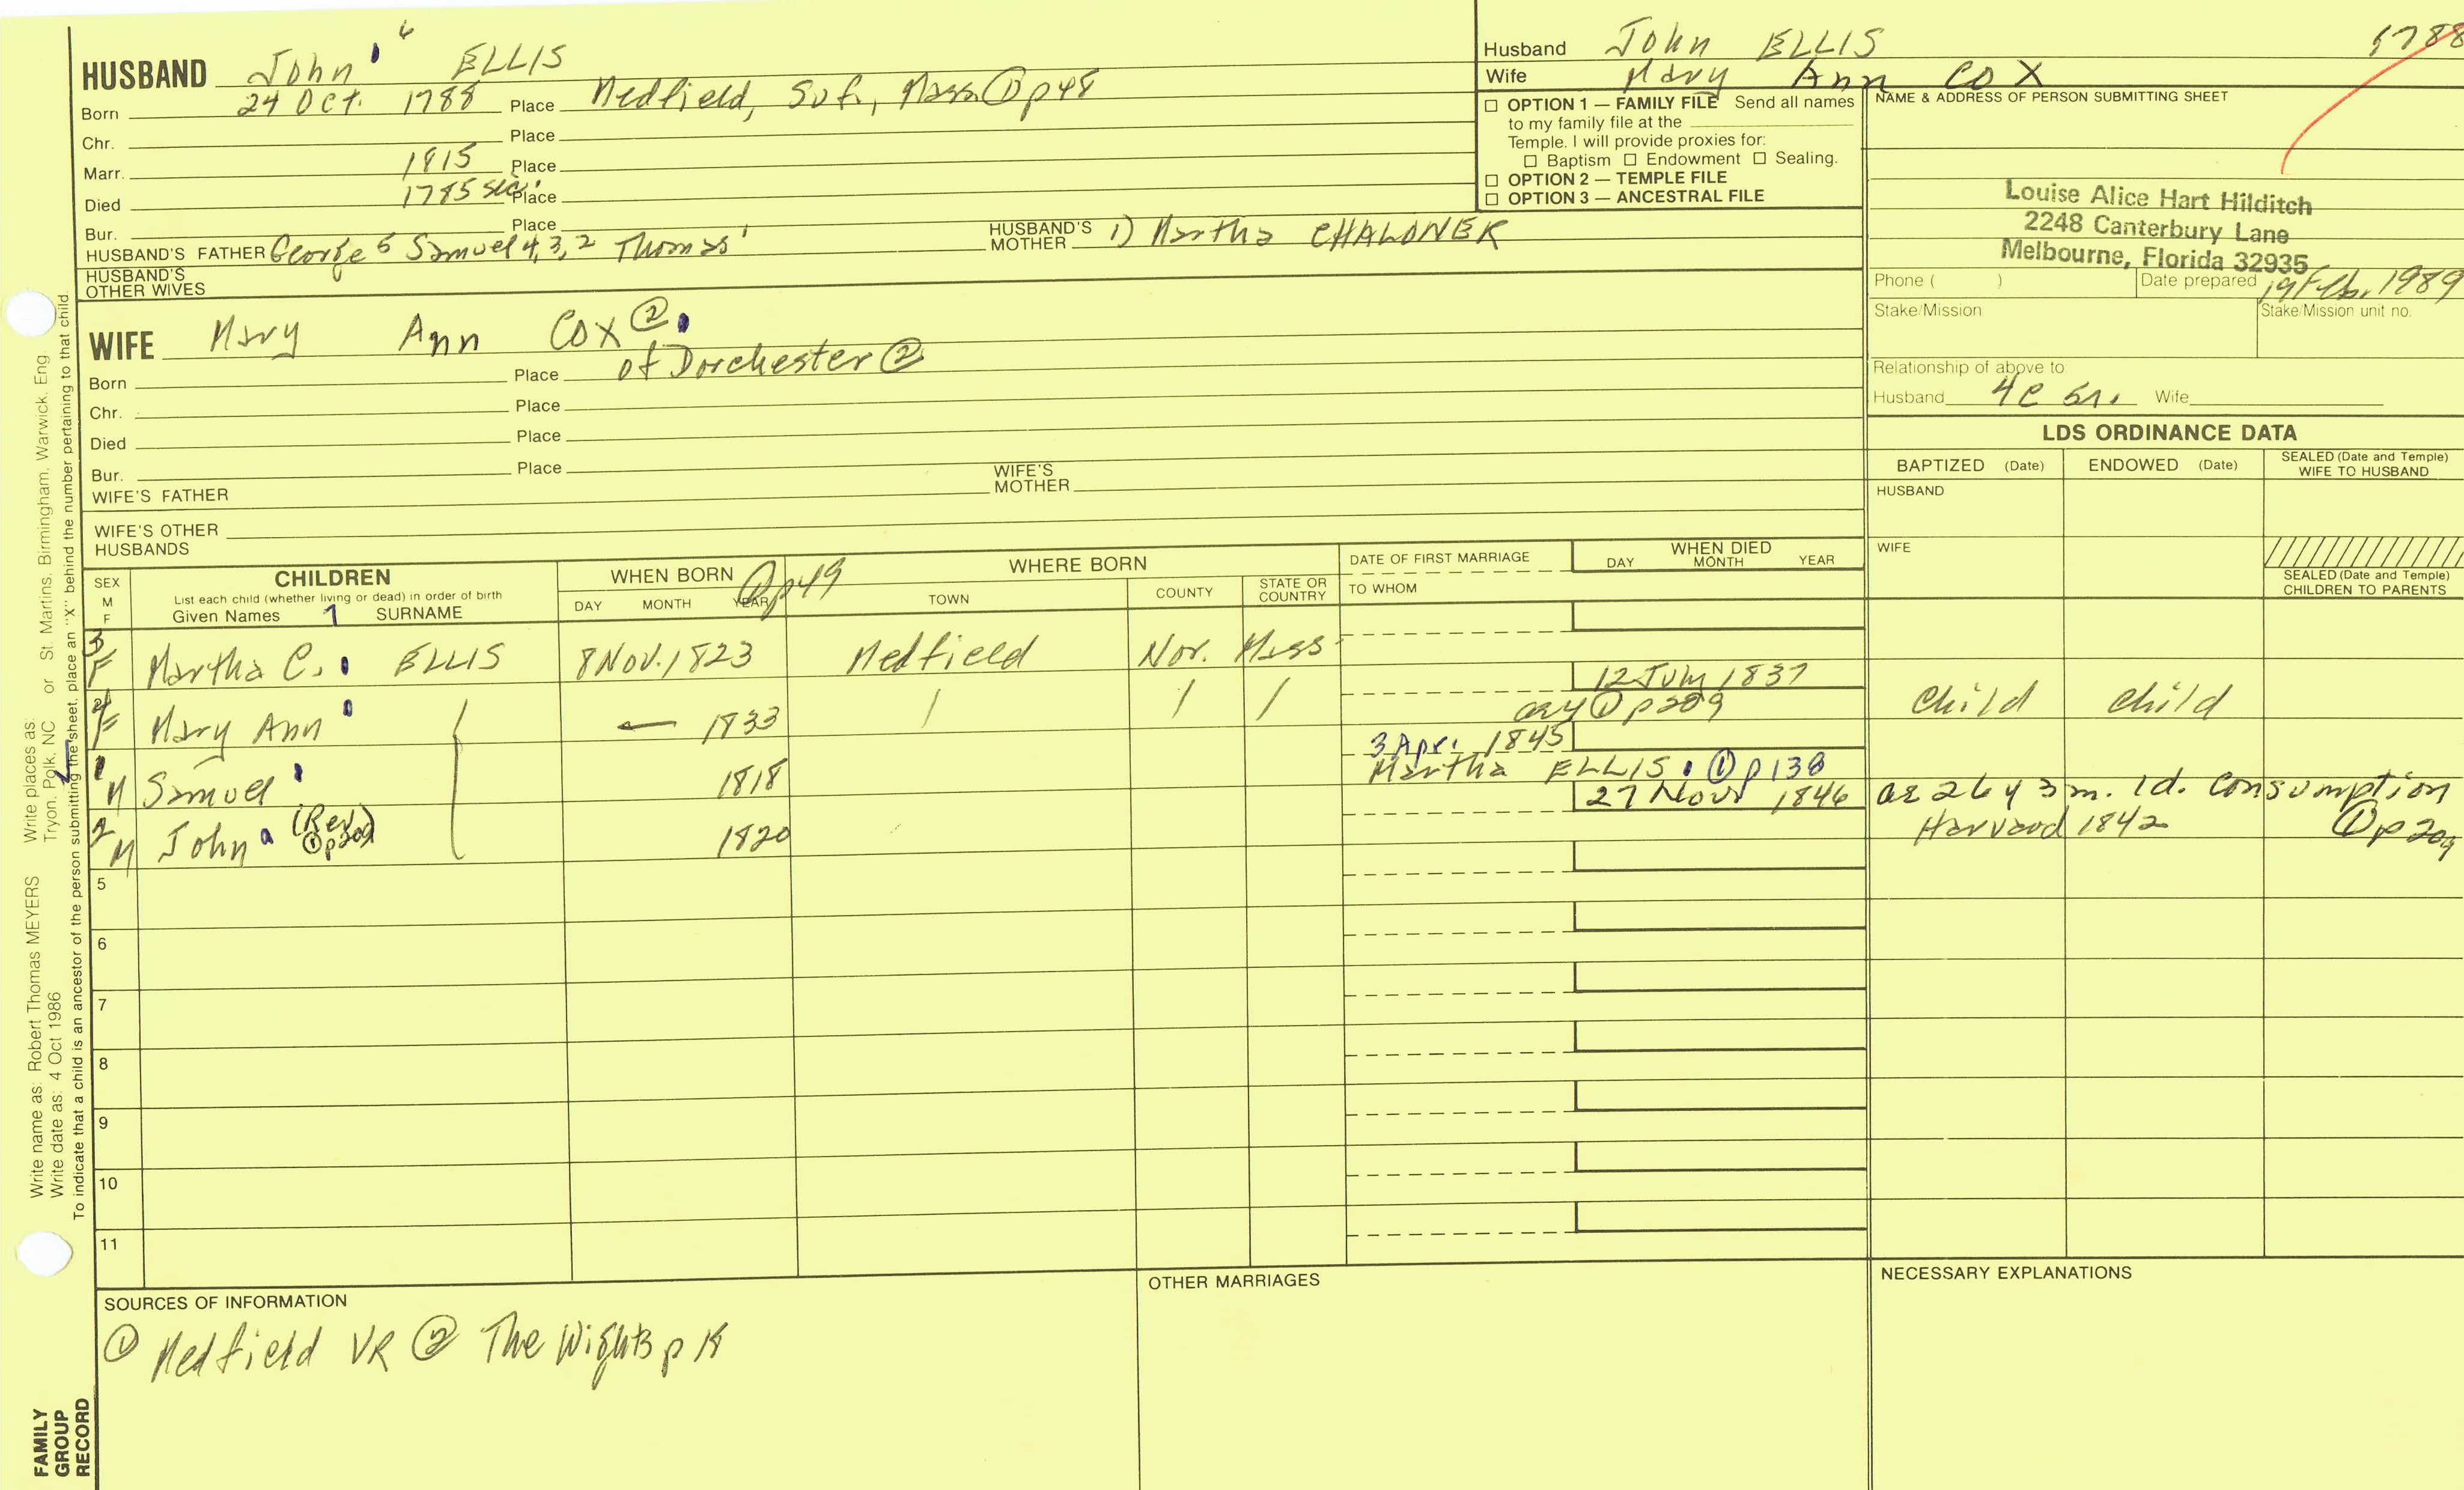 HUSBAND John 6 ELLIS
Born 24 Oct. 1788 Place Medfield, Suf., Mass ① p48
Chr. Place
Marr. 1815 Place
Died Place
Bur. Place
HUSBAND'S FATHER George 5 Samuel 4,3,2 Thomas 1 HUSBAND'S MOTHER 1) Martha CHALONER
HUSBAND'S OTHER WIVES
WIFE Mary Ann Cox ②
Born Place of Dorchester ②
Chr. Place
Died Place
Bur. Place
WIFE'S FATHER WIFE'S MOTHER
WIFE'S OTHER HUSBANDS
Husband John ELLIS 1788
Wife Mary Ann COX
☐ OPTION 1 — FAMILY FILE Send all names
to my family file at the
Temple. I will provide proxies for:
☐ Baptism ☐ Endowment ☐ Sealing.
☐ OPTION 2 — TEMPLE FILE
☐ OPTION 3 — ANCESTRAL FILE
NAME & ADDRESS OF PERSON SUBMITTING SHEET
Louise Alice Hart Hilditch
2248 Canterbury Lane
Melbourne, Florida 32935
Phone ( ) Date prepared 19 Feb. 1989
Stake/Mission Stake/Mission unit no.
Relationship of above to
Husband 4C 5r. Wife
LDS ORDINANCE DATA
BAPTIZED (Date) ENDOWED (Date) SEALED (Date and Temple) WIFE TO HUSBAND
HUSBAND
WIFE
SEALED (Date and Temple)
CHILDREN TO PARENTS
SEX M F
CHILDREN
List each child (whether living or dead) in order of birth
Given Names 7 SURNAME
WHEN BORN ① p49
DAY MONTH YEAR
WHERE BORN
TOWN COUNTY STATE OR COUNTRY
DATE OF FIRST MARRIAGE
TO WHOM
WHEN DIED
DAY MONTH YEAR
3 F Martha C. ELLIS 8 Nov. 1823 Medfield Nor. Mass
4 F Mary Ann — 1833 / / / 12 July 1837 ① p209 Child Child
1 M Samuel 1818 3 Apr. 1845 Martha ELLIS ① p138
2 M John (Rev) ① p209 1820 27 Nov 1846 ae 26 y 3 m. 1d. consumption
Harvard 1842 ① p 209
5
6
7
8
9
10
11
SOURCES OF INFORMATION
① Medfield VR ② The Wights p
OTHER MARRIAGES
NECESSARY EXPLANATIONS
Write name as: Robert Thomas MEYERS Write places as: St. Martins, Birmingham, Warwick, Eng
Write date as: 4 Oct 1986 Tryon, Polk, NC or
To indicate that a child is an ancestor of the person submitting the sheet, place an "X" behind the number pertaining to that child.
FAMILY
GROUP
RECORD